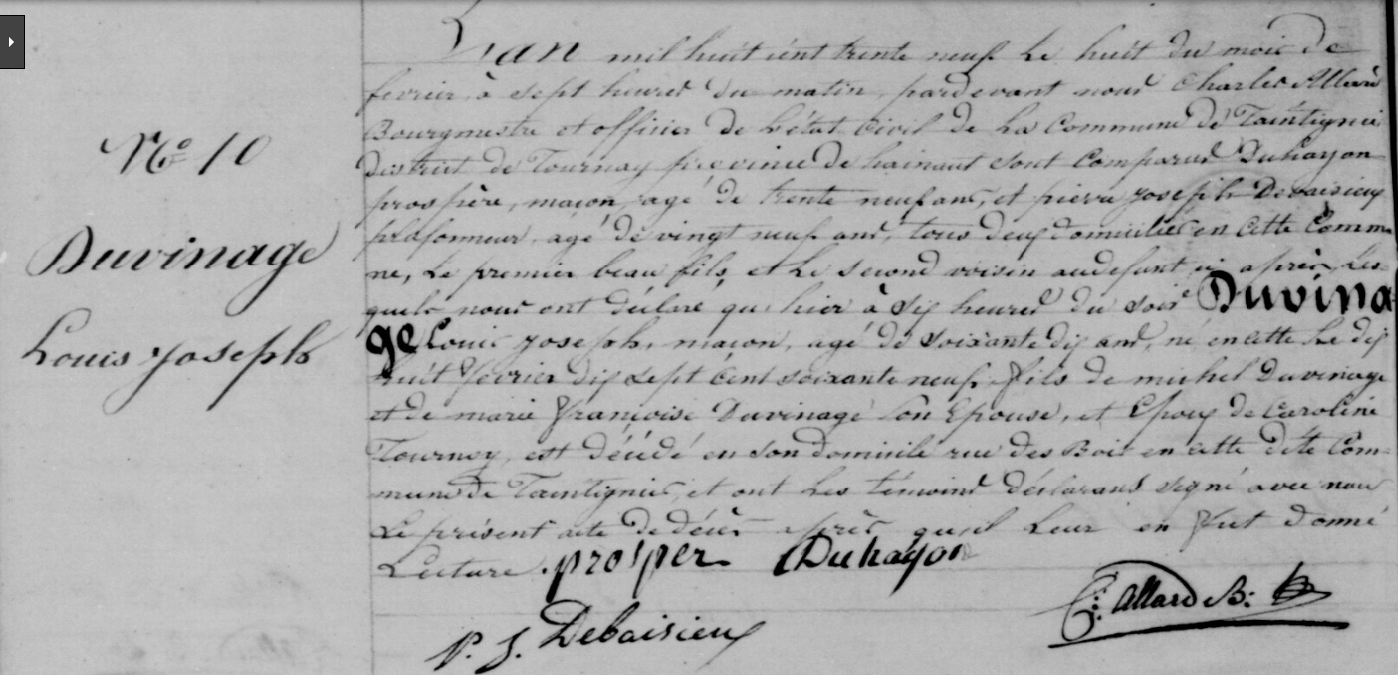 No 10
Duvinage
Louis joseph
L'an mil huit cent trente neuf le huit du mois de
fevrier, à sept heures du matin, pardevant nous Charles Allard
Bourgmestre et officier de l'état Civil de la Commune de Taintignies
district de Tournay province de hainaut sont Comparus Duhayon
prospère, maçon, agé de trente neuf ans, et pierre joseph Debaisieux
plafonneur, agé de vingt neuf ans, tous deux domiciliés en cette Commu-
ne, le premier beau fils et le second voisin au défunt ci après les-
quels nous ont déclaré qu'hier à six heures du soir Duvina
ge Louis joseph, maçon, agé de soixante dix ans, né en cette le dix
huit fevrier dix sept cent soixante neuf, fils de michel Duvinage
et de marie françoise Duvinage son Epouse, et Epoux de Caroline
Tournoy, est décédé en son domicile rue des Bois en cette dite Com-
mune de Taintignies, et ont les témoins déclarans signé avec nous
le présent acte de décès après qu'il leur en fut donné
Lecture. prosper Duhayon
C: Allard B:
P. J. Debaisieux